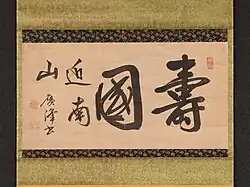 壽
國
近南
山
廣澤書